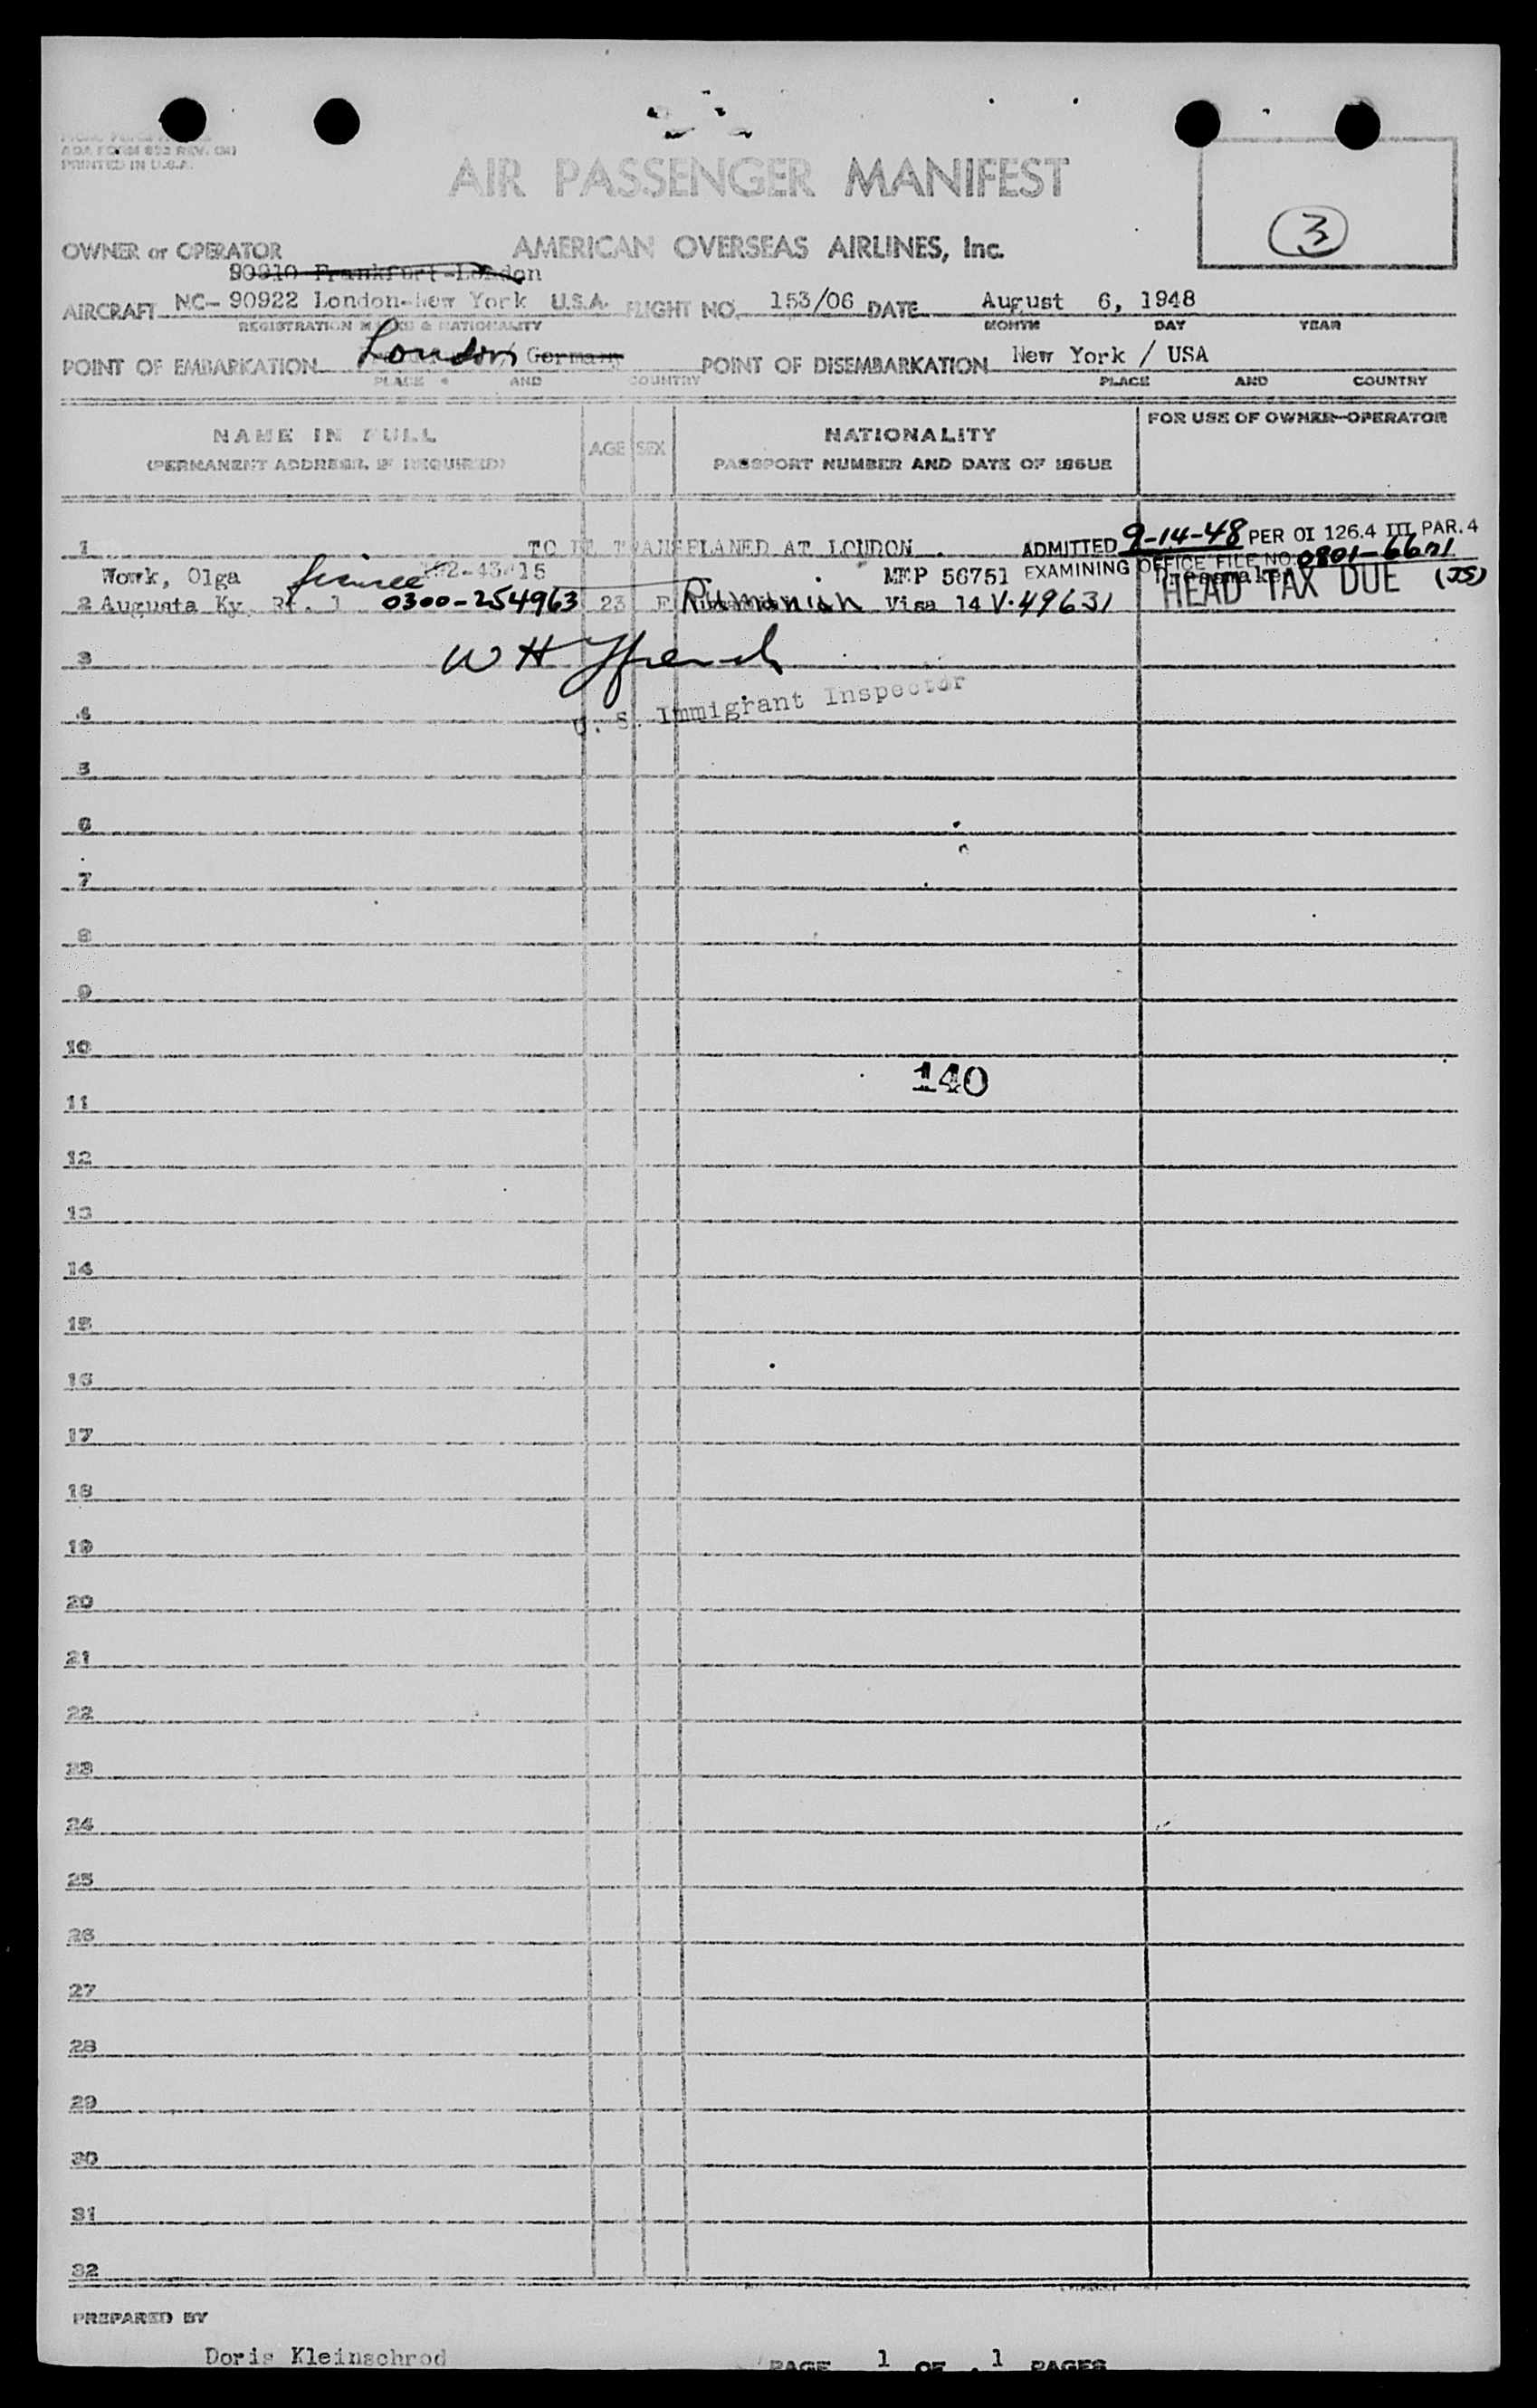 AOA FORM 652 REV.
PRINTED IN U.S.A.
AIR PASSENGER MANIFEST
3
OWNER or OPERATOR AMERICAN OVERSEAS AIRLINES, Inc.
90910 Frankfurt-London
AIRCRAFT NC- 90922 London-New York U.S.A. FLIGHT NO. 153/06 DATE August 6, 1948
REGISTRATION MARKS & NATIONALITY MONTH DAY YEAR
POINT OF EMBARKATION London Germany POINT OF DISEMBARKATION New York / USA
PLACE AND COUNTRY PLACE AND COUNTRY
NAME IN FULL AGE SEX NATIONALITY FOR USE OF OWNER-OPERATOR
(PERMANENT ADDRESS, IF REQUIRED) PASSPORT NUMBER AND DATE OF ISSUE
1 TO BE TRANSPLANED AT LONDON . ADMITTED 9-14-48 PER OI 126.4 III PAR. 4
EXAMINING OFFICE FILE NO.
Wowk, Olga fiancee MEP 56751 Dressmaker
2 Augusta Ky. Rt. 1 0300-254963 23 F Rumanian Visa 14 V-49631 HEAD TAX DUE (JS)
3 W H French
4 U. S. Immigrant Inspector
5
6
7
8
9
10
140
11
12
13
14
15
16
17
18
19
20
21
22
23
24
25
26
27
28
29
30
31
32
PREPARED BY
Doris Kleinschrod PAGE 1 OF 1 PAGES